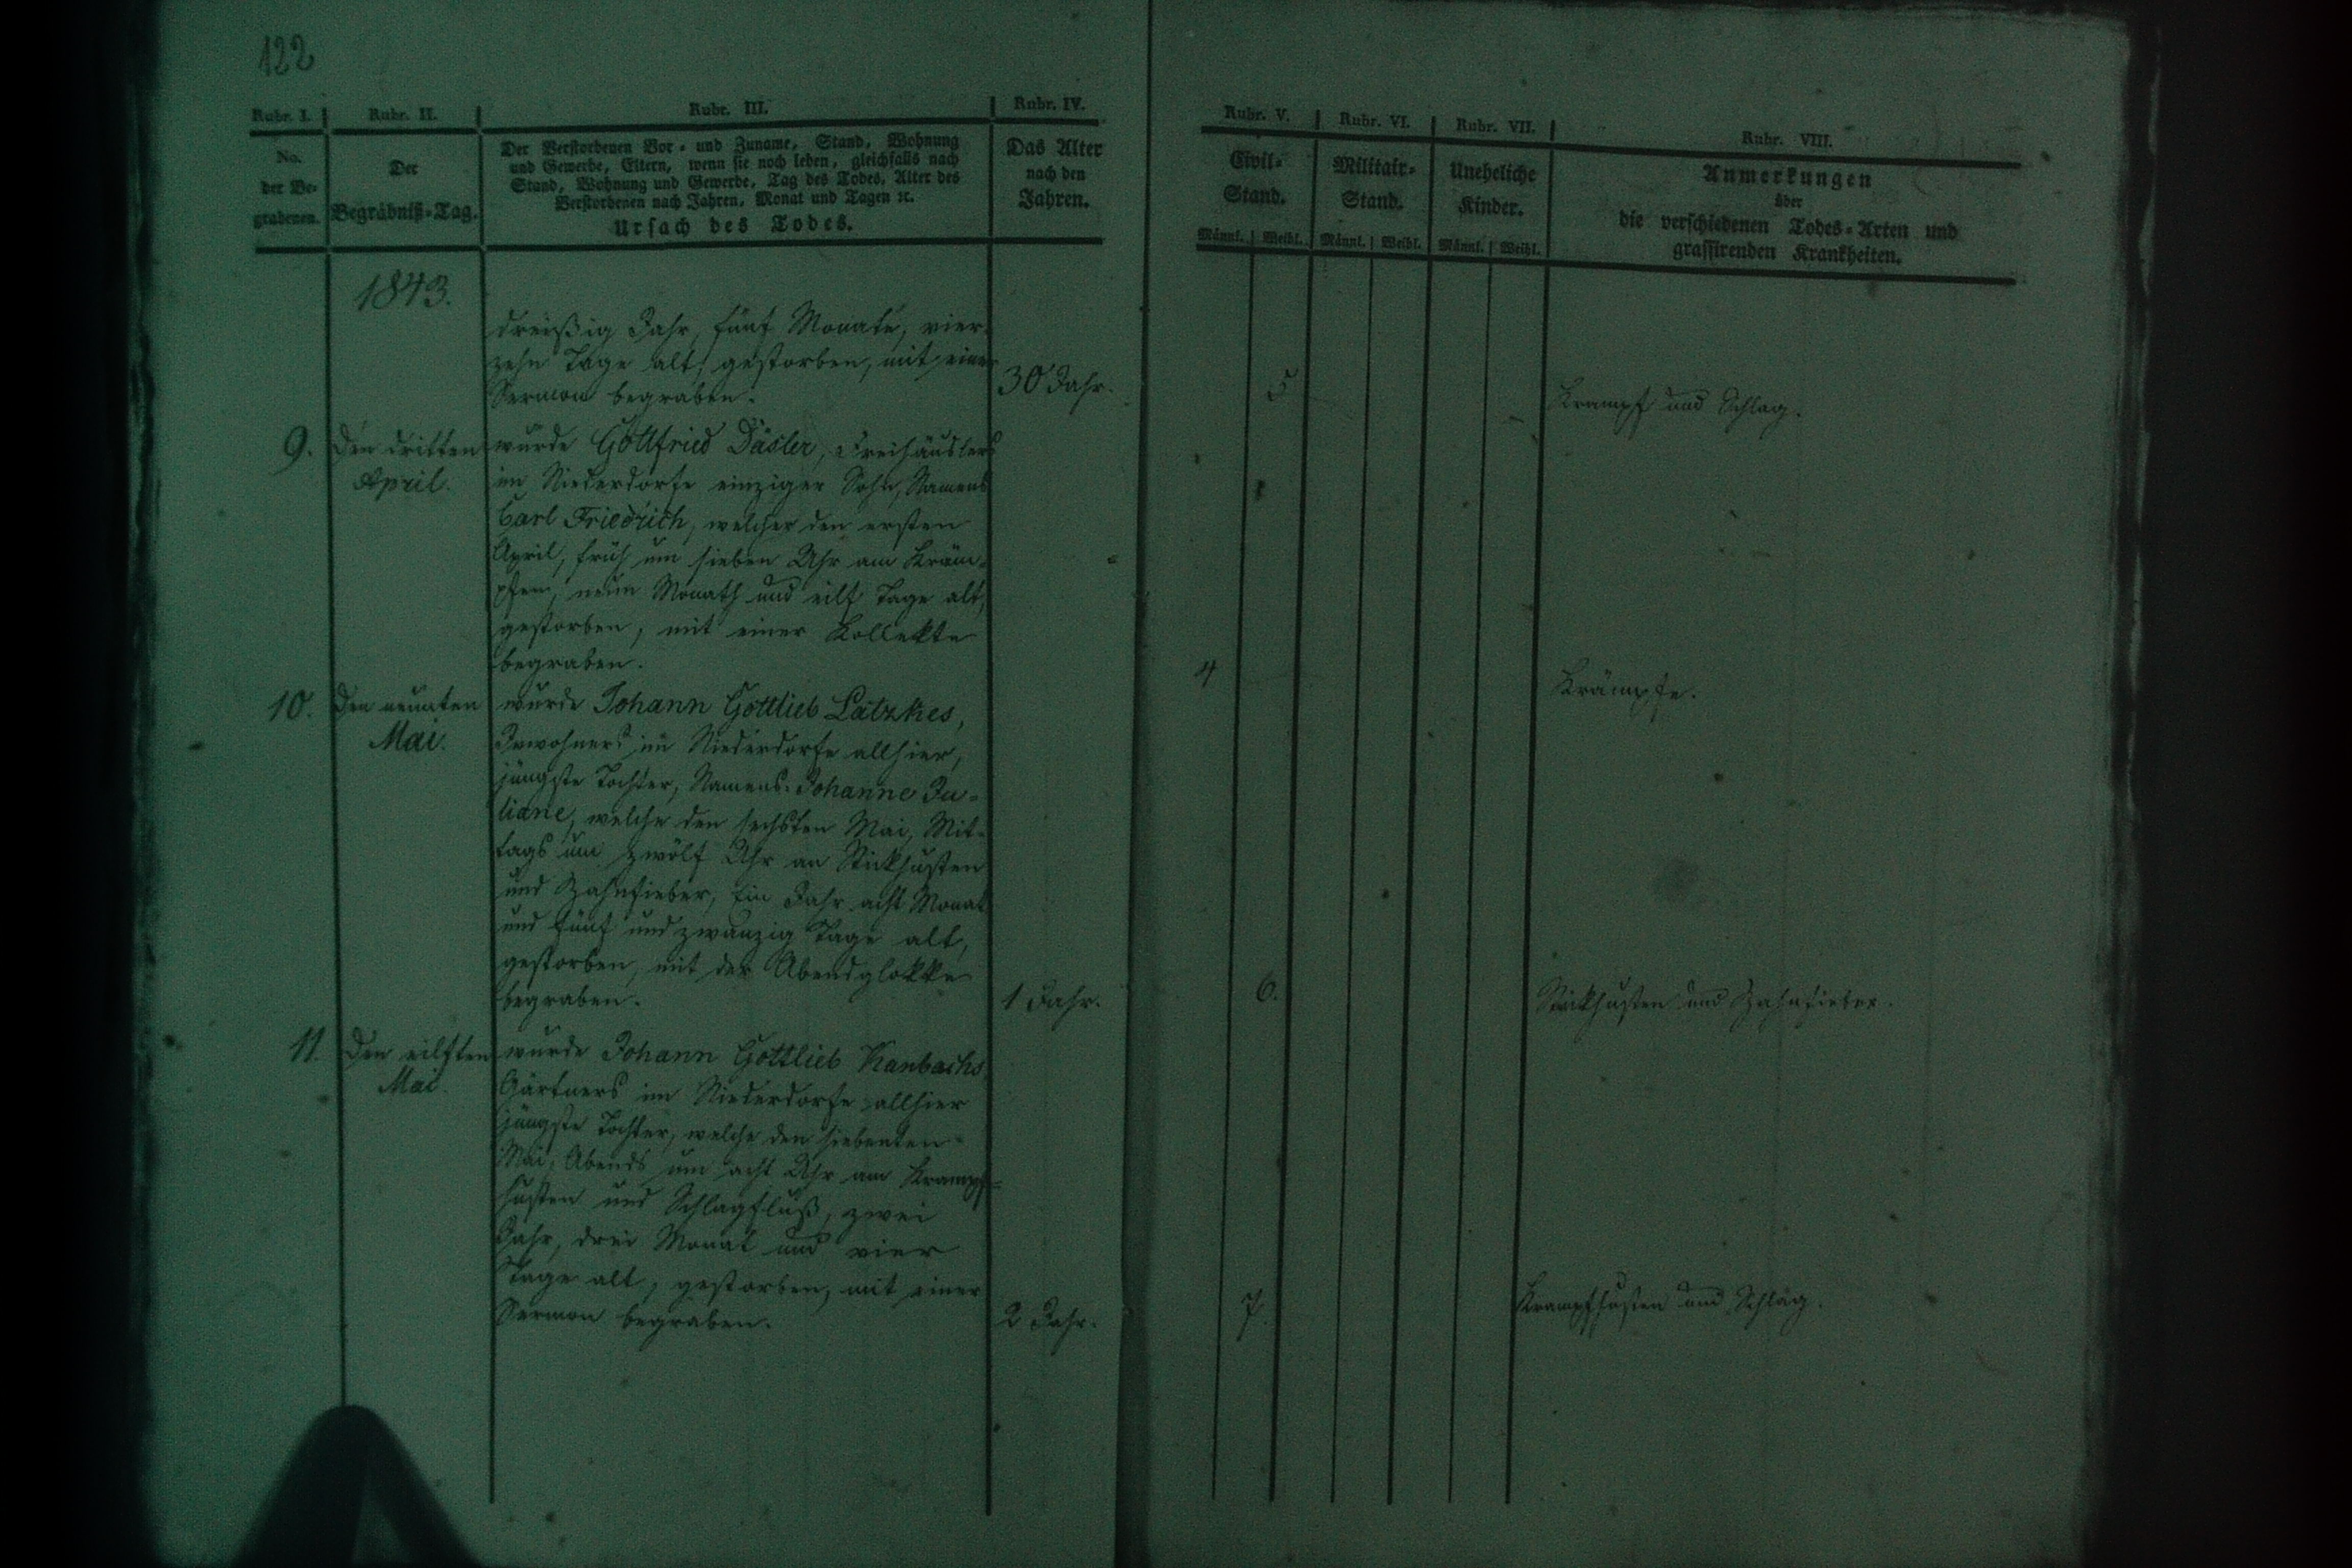 122
Rubr. I.
Rubr. II.
Rubr. III.
Rubr. IV.
No.
der Be-
grabenen.
Der
Begräbniß-Tag.
Der Verstorbenen Vor- und Zuname, Stand, Wohnung
und Gewerbe, Eltern, wenn sie noch leben, gleichfalls nach
Stand, Wohnung und Gewerbe, Tag des Todes, Alter des
Verstorbenen nach Jahren, Monat und Tagen ꝛc.
Ursach des Todes.
Das Alter
nach den
Jahren.
1843.
dreißig Jahr, fünf Monate, vier-
zehn Tage alt, gestorben, mit einer
Sermon begraben.
30 Jahr.
9.
Den dritten
April.
wurde Gottfried Däsler, Freihäuslers
im Niederdorfe einziger Sohn, Namens
Carl Friedrich, welcher den ersten
April, früh um sieben Uhr am Kräm-
pfen, neun Monath und eilf Tage alt,
gestorben, mit einer Kollekte
begraben.
10.
Den neunten
Mai.
wurde Johann Gottlieb Latzkes,
Inwohners im Niederdorfe allhier,
jüngste Tochter, Namens Johanne Ju-
liane, welche den sechsten Mai, Mit-
tags um zwölf Uhr an Stickhusten
und Zahnfieber, Ein Jahr acht Monat
und fünf und zwanzig Tage alt,
gestorben, mit der Abendglokke
begraben.
1 Jahr.
11.
Den eilften
Mai.
wurde Johann Gottlieb Kanbachs
Gärtners im Niederdorfe allhier
jüngste Tochter, welche den siebenten
Mai, Abends um acht Uhr am Krampf-
husten und Schlagfluß, zwei
Jahr, drei Monat und vier
Tage alt, gestorben, mit einer
Sermon begraben.
2 Jahr.
Rubr. V.
Rubr. VI.
Rubr. VII.
Rubr. VIII.
Civil-
Stand.
Militair-
Stand.
Uneheliche
Kinder.
Anmerkungen
über
die verschiedenen Todes-Arten und
grassirenden Krankheiten.
Männl. Weibl. Männl. Weibl. Männl. Weibl.
5
Krampf und Schlag.
4
Krämpfe.
6.
Stickhusten und Zahnfieber.
7.
Krampfhusten und Schlag.